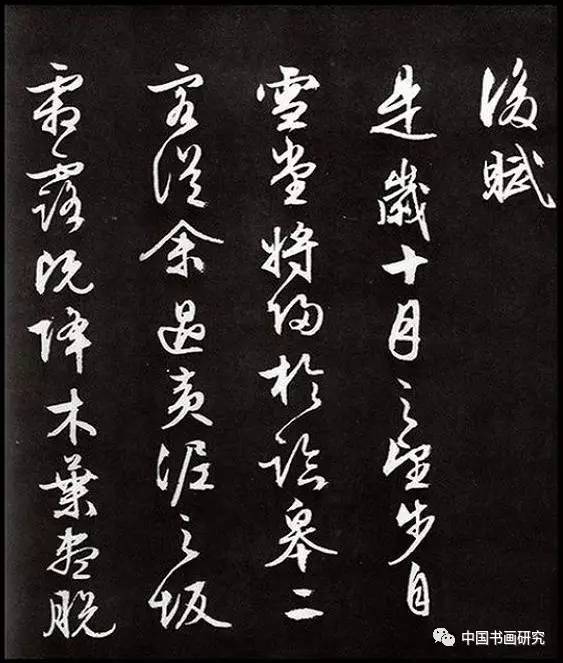 後賦
是歲十月之望步自
雪堂將歸於臨皋二
客從余過黃泥之坂
霜露既降木葉盡脫
中国书画研究